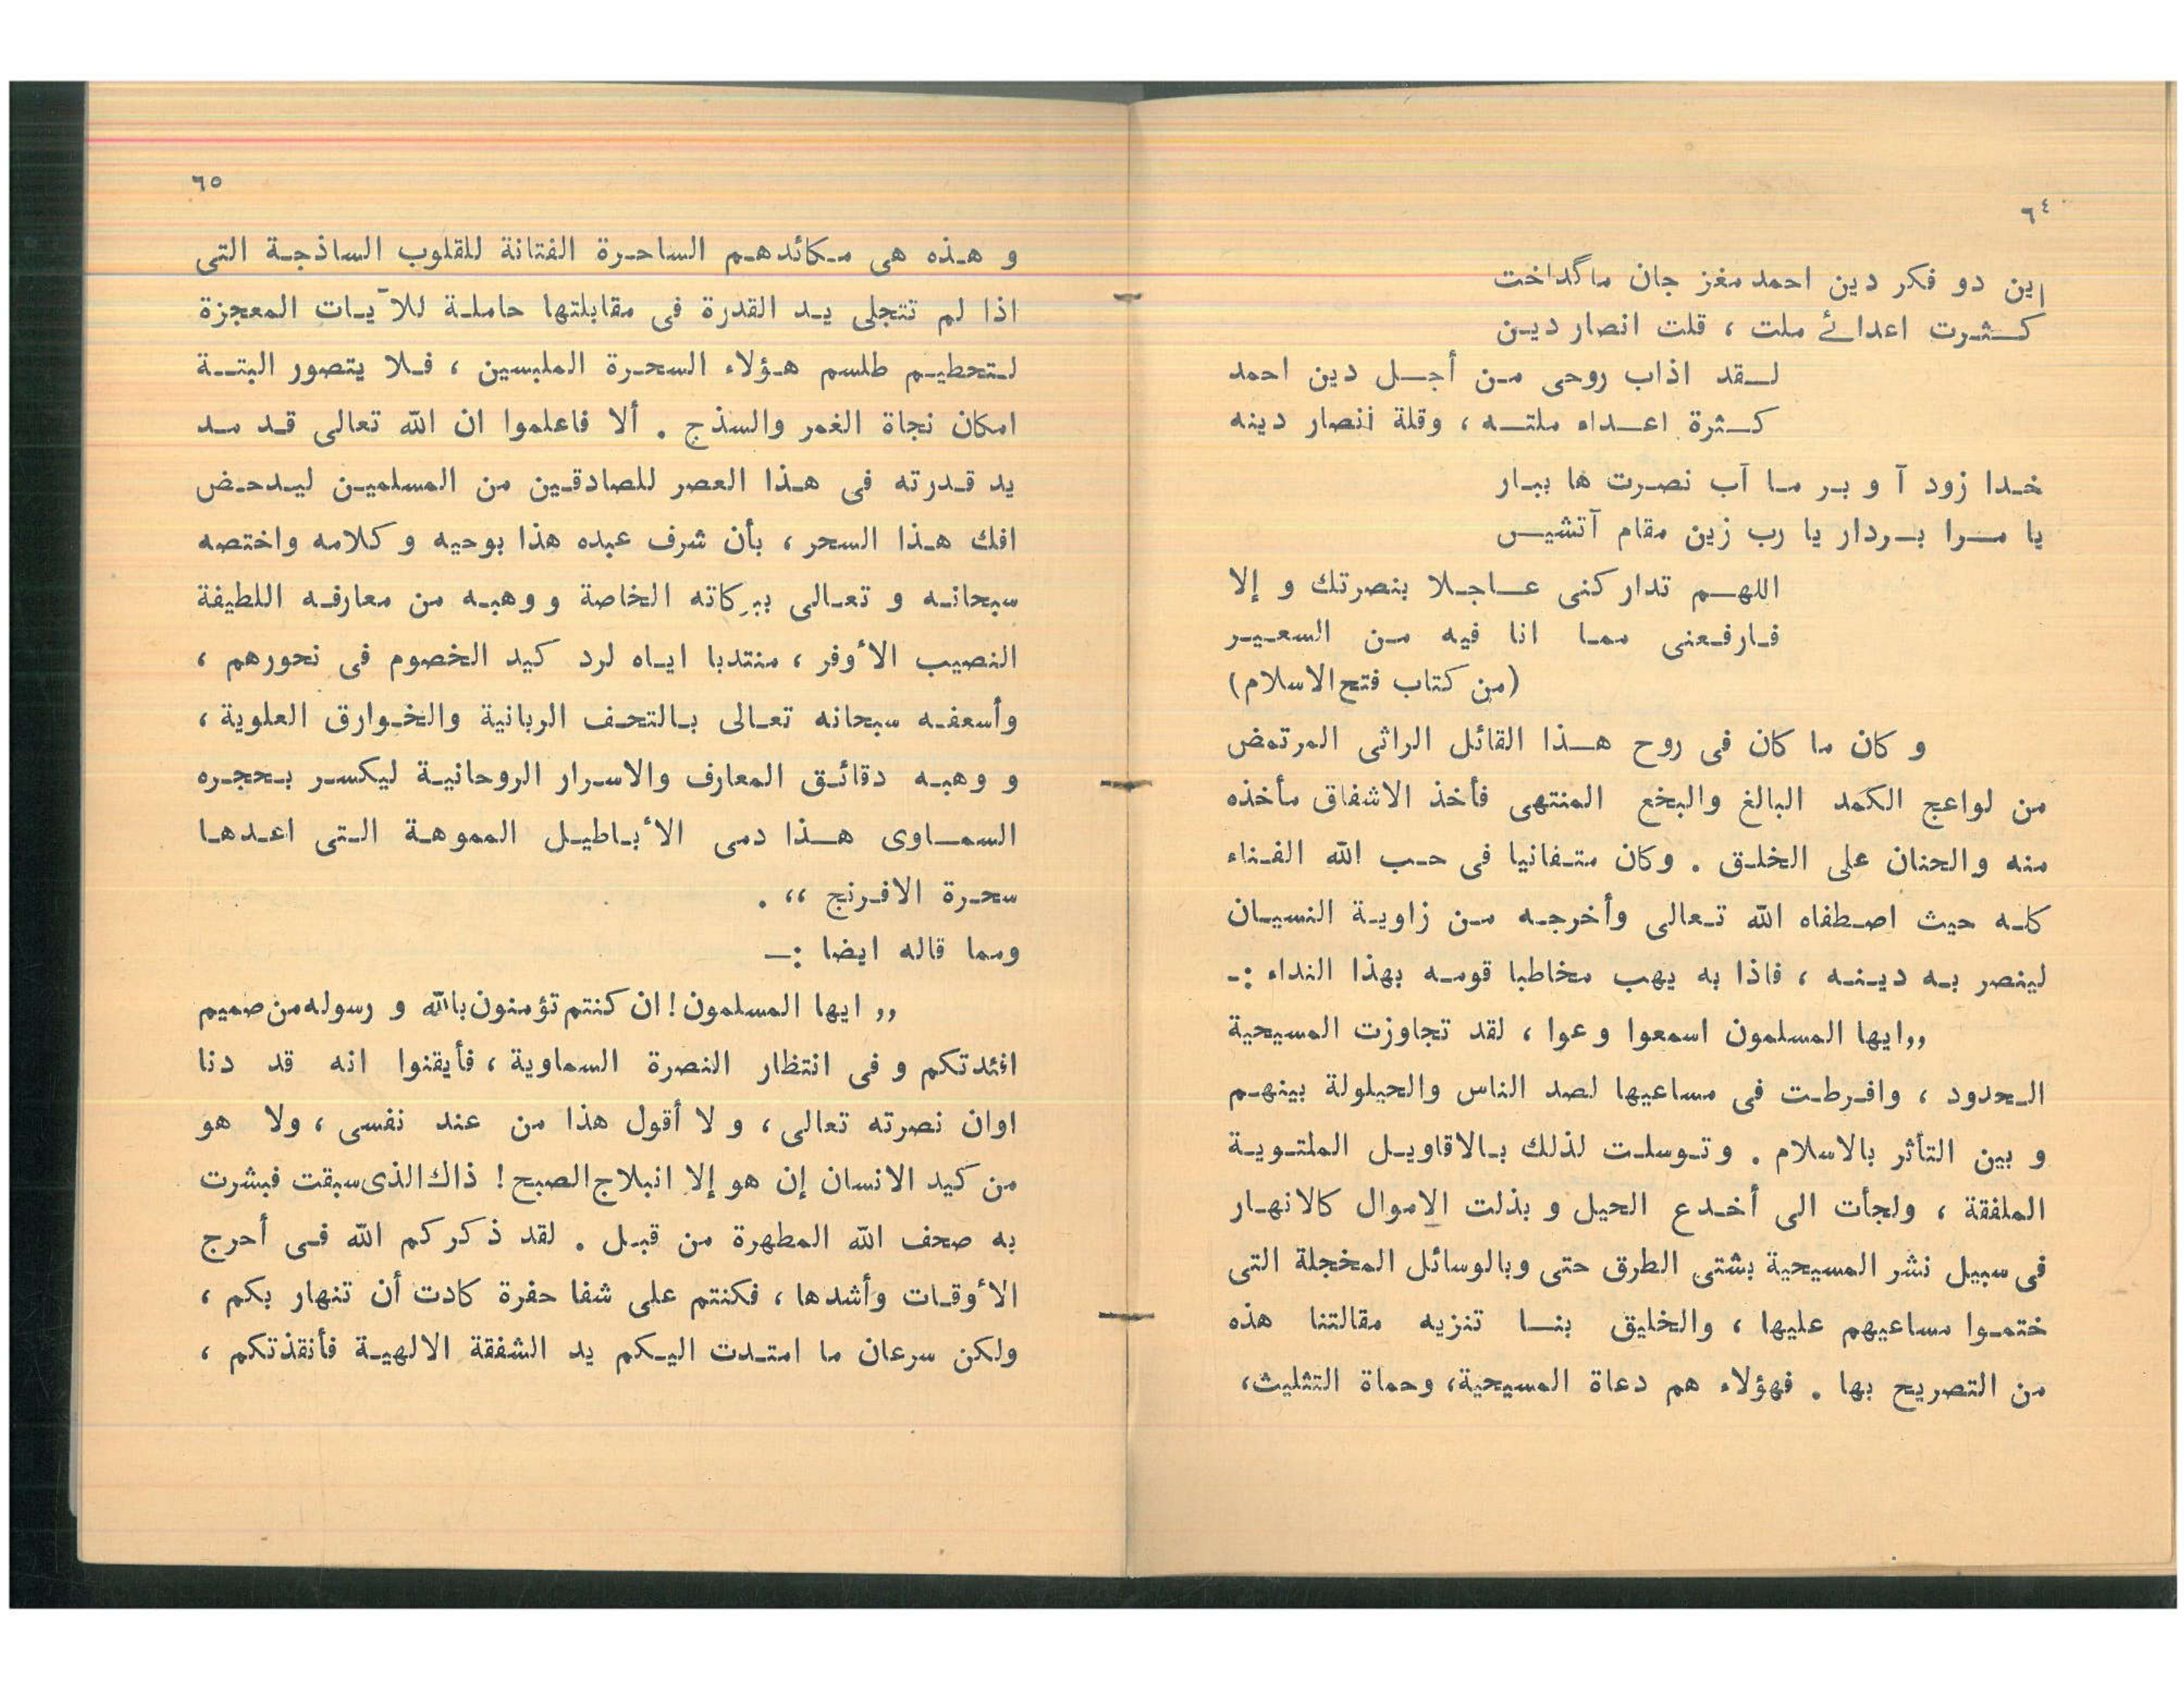 ٦٤
این دو فکر دین احمد مغز جان ما گداخت
کثرت اعدائے ملت ، قلت انصار دین
لقد اذاب روحى من أجل دين احمد
كثرة اعداء ملته ، وقلة انصار دينه
خدا زود آ و بر ما آب نصرت ها ببار
یا مرا بردار یا رب زین مقام آتشیں
اللهم تداركنى عاجلا بنصرتك و إلا
فارفعنى مما انا فيه من السعير
(من كتاب فتح الاسلام)
و كان ما كان فى روح هذا القائل الراثى المرتمض
من لواعج الكمد البالغ والبخع المنتهى فأخذ الاشفاق مأخذه
منه والحنان على الخلق . وكان متفانيا فى حب الله الفناء
كله حيث اصطفاه الله تعالى وأخرجه من زاوية النسيان
لينصر به دينه ، فاذا به يهب مخاطبا قومه بهذا النداء :ـ
,,ايها المسلمون اسمعوا وعوا ، لقد تجاوزت المسيحية
الحدود ، وافرطت فى مساعيها لصد الناس والحيلولة بينهم
و بين التأثر بالاسلام . وتوسلت لذلك بالاقاويل الملتوية
الملفقة ، ولجأت الى أخدع الحيل و بذلت الاموال كالانهار
فى سبيل نشر المسيحية بشتى الطرق حتى وبالوسائل المخجلة التى
ختموا مساعيهم عليها ، والخليق بنا تنزيه مقالتنا هذه
من التصريح بها . فهؤلاء هم دعاة المسيحية، وحماة التثليث،
٦٥
و هذه هى مكائدهم الساحرة الفتانة للقلوب الساذجة التى
اذا لم تتجلى يد القدرة فى مقابلتها حاملة للآيات المعجزة
لتحطيم طلسم هؤلاء السحرة الملبسين ، فلا يتصور البتة
امكان نجاة الغمر والسذج . ألا فاعلموا ان الله تعالى قد مد
يد قدرته فى هذا العصر للصادقين من المسلمين ليدحض
افك هذا السحر ، بأن شرف عبده هذا بوحيه و كلامه واختصه
سبحانه و تعالى ببركاته الخاصة ووهبه من معارفه اللطيفة
النصيب الأوفر ، منتدبا اياه لرد كيد الخصوم فى نحورهم ،
وأسعفه سبحانه تعالى بالتحف الربانية والخوارق العلوية ،
و وهبه دقائق المعارف والاسرار الروحانية ليكسر بحجره
السماوى هذا دمى الأباطيل المموهة التى اعدها
سحرة الافرنج ،، .
ومما قاله ايضا :ـ
,, ايها المسلمون! ان كنتم تؤمنون بالله و رسوله من صميم
افئدتكم و فى انتظار النصرة السماوية ، فأيقنوا انه قد دنا
اوان نصرته تعالى ، و لا أقول هذا من عند نفسى ، ولا هو
من كيد الانسان إن هو إلا انبلاج الصبح! ذاك الذى سبقت فبشرت
به صحف الله المطهرة من قبل . لقد ذكركم الله فى أحرج
الأوقات وأشدها ، فكنتم على شفا حفرة كادت أن تنهار بكم ،
ولكن سرعان ما امتدت اليكم يد الشفقة الالهية فأنقذتكم ،